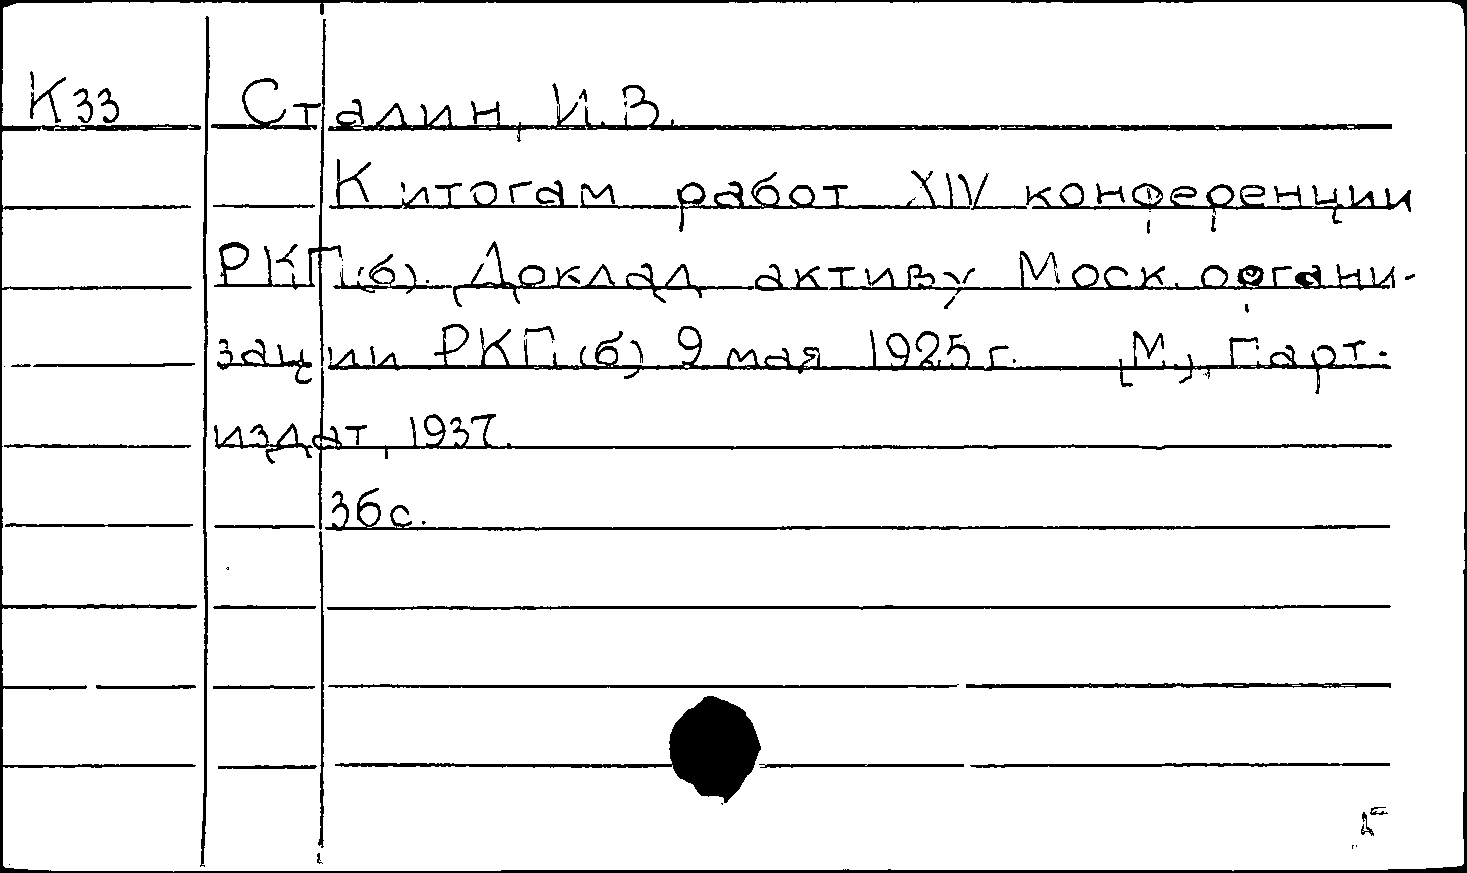 К33 Сталин, И.В.
К итогам работ XIV конференции
РКП(б). Доклад активу Моск. органи-
зации РКП(б) 9 мая 1925 г. [М.], Парт-
издат, 1937.
36 с.